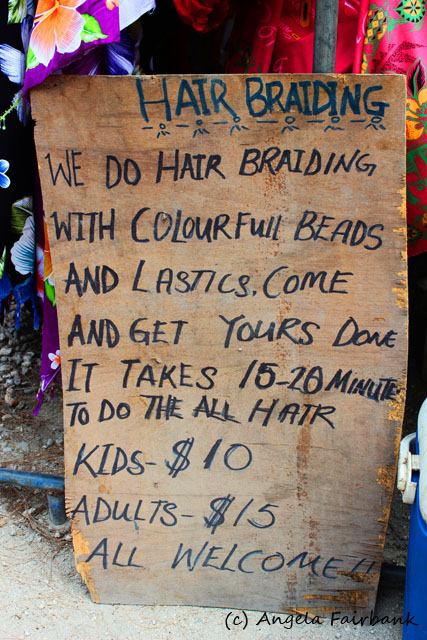 HAIR BRAIDING
WE DO HAIR BRAIDING
WITH COLOURFULL BEADS
AND LASTICS, COME
AND GET YOURS DONE
IT TAKES 15-20 MINUTE
TO DO THE ALL HAIR
KIDS - $10
ADULTS - $15
ALL WELCOME!!
(c) Angela Fairbank